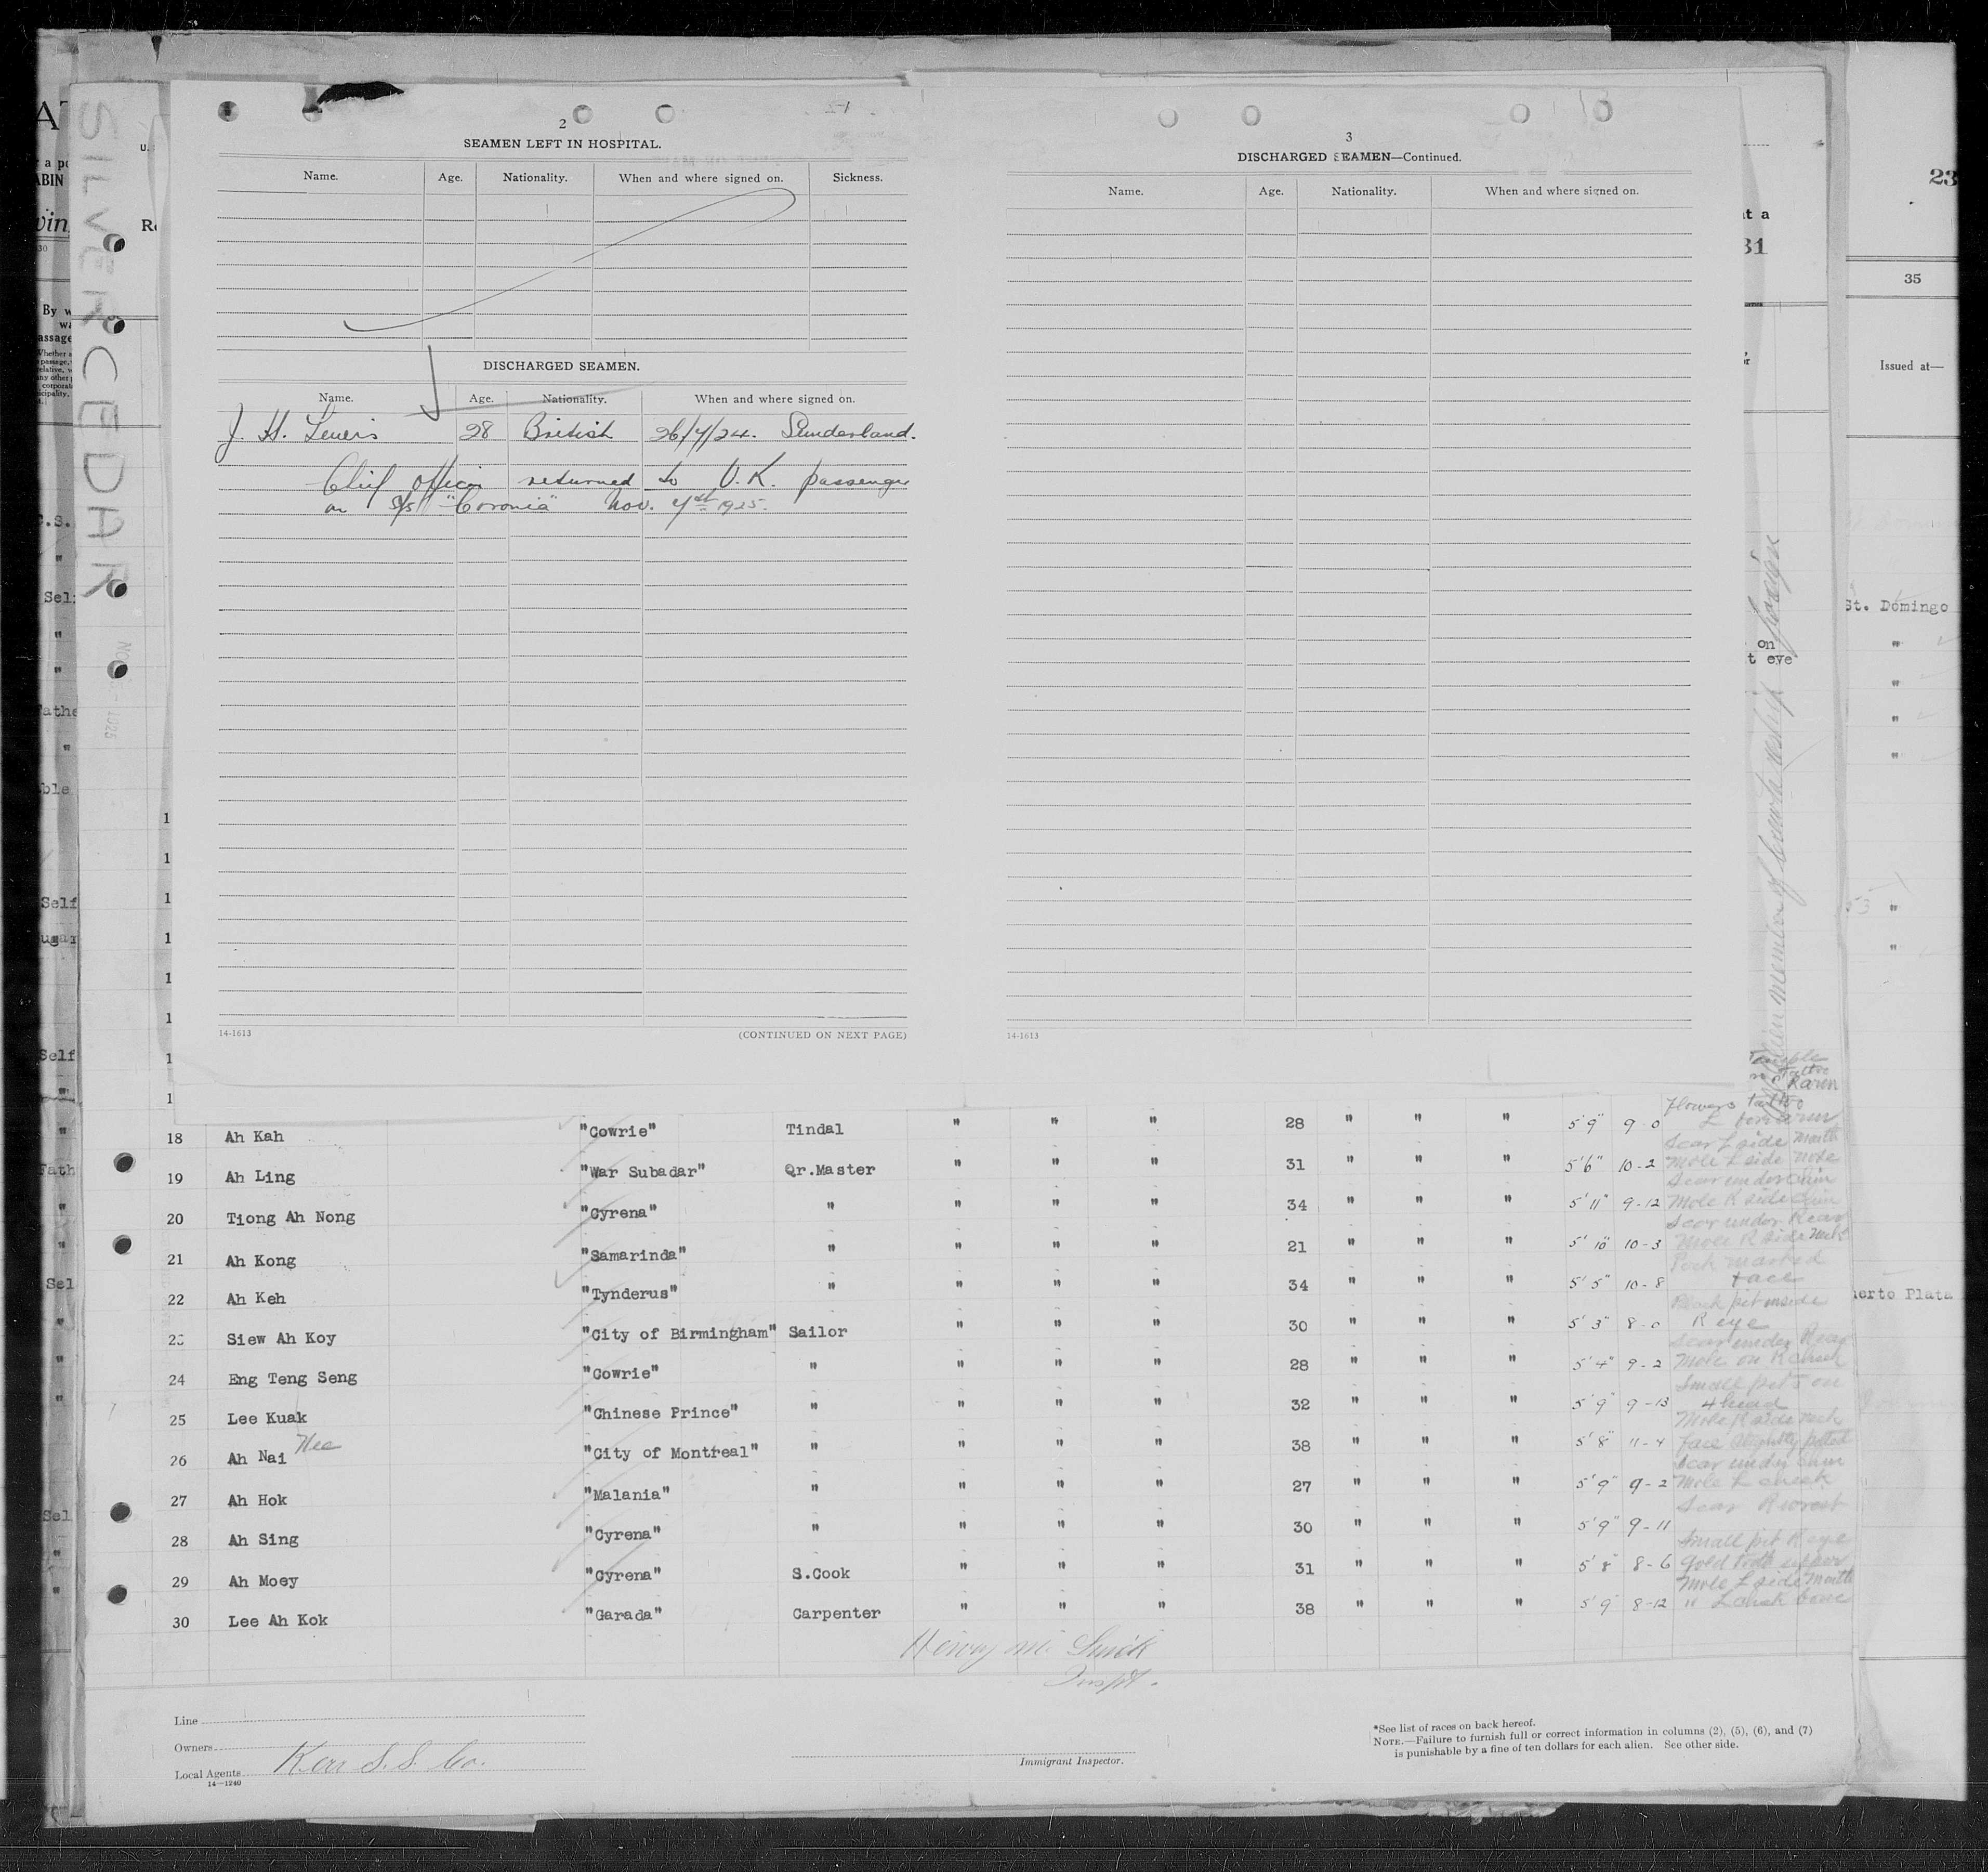 SILVERCEDAR
2
SEAMEN LEFT IN HOSPITAL.
Name. Age. Nationality. When and where signed on. Sickness.
DISCHARGED SEAMEN.
Name. Age. Nationality. When and where signed on.
J. H. 28 British 26/7/24. Sunderland.
Chief officer returned to U.K. passenger
on S/S "Coronia" Nov. 7th 1925.
14-1613 (CONTINUED ON NEXT PAGE)
3
DISCHARGED SEAMEN—Continued.
Name. Age. Nationality. When and where signed on.
14-1613
23
35
Issued at—
31
St. Domingo
"
"
"
"
"
"
on
t eye
Flowers tattoo
18 Ah Kah "Cowrie" Tindal " " " 28 " " " 5'9" 9-0 L forearm
Scar L side mouth
19 Ah Ling "War Subadar" Qr.Master " " " 31 " " " 5'6" 10-2 Mole L side nose
Scar under chin
20 Tiong Ah Nong "Cyrena" " " " " 34 " " " 5'11" 9-12 Mole R side chin
Scar under R ear
21 Ah Kong "Samarinda" " " " " 21 " " " 5'10" 10-3 Mole R side neck
Pock marked
22 Ah Keh "Tynderus" " " " " 34 " " " 5'5" 10-8 face
23 Siew Ah Koy "City of Birmingham" Sailor " " " 30 " " " 5'3" 8-0 R eye
Scar under R ear
24 Eng Teng Seng "Cowrie" " " " " 28 " " " 5'4" 9-2 Mole on R cheek
Small pits on
25 Lee Kuak "Chinese Prince" " " " " 32 " " " 5'9" 9-13 4head
Mole R side neck
26 Ah Nai Hee "City of Montreal" " " " " 38 " " " 5'8" 11-4 face slightly pitted
Scar under chin
27 Ah Hok "Malania" " " " " 27 " " " 5'9" 9-2 Mole L cheek
Scar R wrist
28 Ah Sing "Cyrena" " " " " 30 " " " 5'9" 9-11
Small pit R eye
29 Ah Moey "Cyrena" S.Cook " " " 31 " " " 5'8" 8-6 Gold tooth upper
Mole L side mouth
30 Lee Ah Kok "Garada" Carpenter " " " 38 " " " 5'9" 8-12 " L cheek bone
Puerto Plata
Henry M. Smith
Inspt.
Line
Owners
Local Agents Kerr S.S. Co.
14—1240
Immigrant Inspector.
*See list of races on back hereof.
NOTE.—Failure to furnish full or correct information in columns (2), (5), (6), and (7)
is punishable by a fine of ten dollars for each alien. See other side.